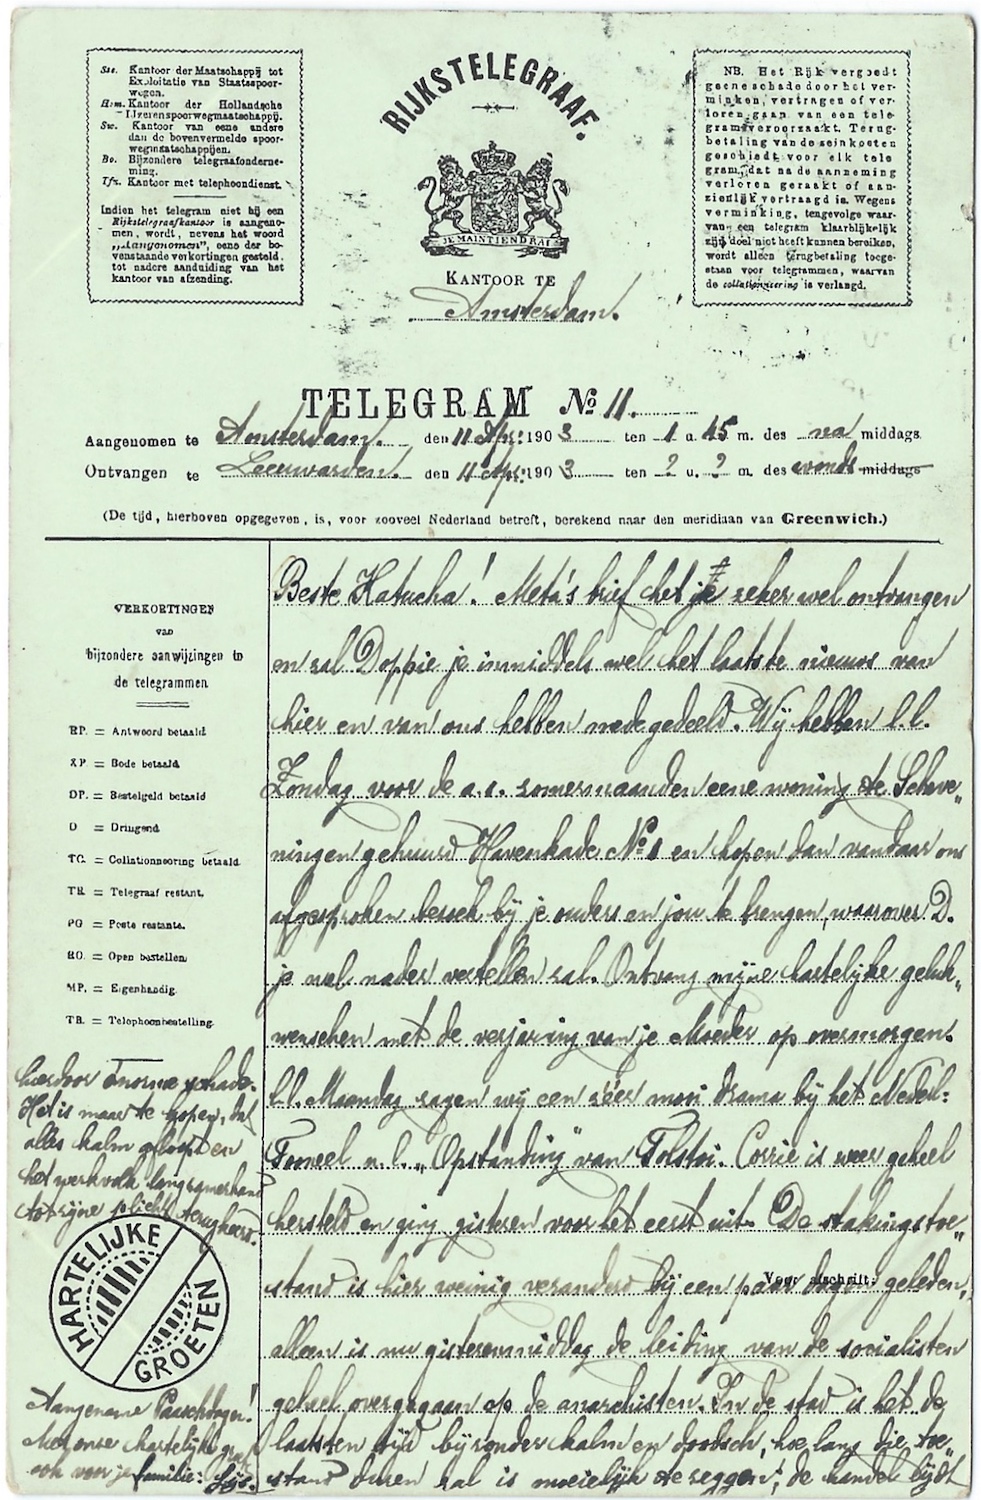 Sss. Kantoor der Maatschappij tot
Exploitatie van Staatsspoor-
wegen.
Hsm. Kantoor der Hollandsche
IJzerenspoorwegmaatschappij.
Sw. Kantoor van eene andere
dan de bovenvermelde spoor-
wegmaatschappijen.
Bo. Bijzondere telegraafonderne-
ming.
Tfn. Kantoor met telephoondienst.
Indien het telegram niet bij een
Rijkstelegraafkantoor is aangeno-
men, wordt, nevens het woord
„Aangenomen", eene der bo-
venstaande verkortingen gesteld,
tot nadere aanduiding van het
kantoor van afzending.
RIJKSTELEGRAAF.
JE MAINTIENDRAI
KANTOOR TE
Amsterdam.
NB. Het Rijk vergoedt
geene schade door het ver-
minken, vertragen of ver-
loren gaan van een tele-
gram veroorzaakt. Terug-
betaling van de seinkosten
geschiedt voor elk tele
gram, dat na de aanneming
verloren geraakt of aan-
zienlijk vertraagd is. Wegens
verminking, tengevolge waar-
van een telegram klaarblijkelijk
zijn doel niet heeft kunnen bereiken,
wordt alleen terugbetaling toege-
staan voor telegrammen, waarvan
de collationneering is verlangd.
TELEGRAM No 11.
Aangenomen te Amsterdam. den 11 Apr: 1903 ten 1 u. 45 m. des na middags.
Ontvangen te Leeuwarden. den 11 Apr: 1903 ten ? u. ? m. des avonds middags
(De tijd, hierboven opgegeven, is, voor zooveel Nederland betreft, berekend naar den meridiaan van Greenwich.)
VERKORTINGEN
van
bijzondere aanwijzingen in
de telegrammen
RP. = Antwoord betaald
XP = Bode betaald
DP. = Bestelgeld betaald
D = Dringend
TC. = Collationneering betaald
TR = Telegraaf restant.
PG = Poste restante.
RO. = Open bestellen
MP. = Eigenhandig.
TB. = Telephoonbestelling.
Beste Katucha! Meta's brief heb je zeker wel ontvangen
en zal Doppie je inmiddels wel het laatste nieuws van
hier en van ons hebben medegedeeld. Wij hebben l.l.
Zondag voor de a.s. zomermaanden eene woning te Scheve„
ningen gehuurd Havenkade No 1 en hopen dan vandaar ons
afgesproken bezoek bij je ouders en jou te brengen, waarover D.
je wel nader vertellen zal. Ontvang mijne hartelijke geluk„
wenschen met de verjaring van je Moeder op overmorgen.
l.l. Maandag zagen wij een zéér mooi drama bij het Nederl:
Tooneel n.l. „Opstanding" van Tolstoi. Corrie is weer geheel
hersteld en ging gisteren voor het eerst uit. De stakingstoe„
stand is hier weinig veranderd bij een paar dagen geleden,
Voor afschrift:
alleen is nu gisterenmiddag de leiding van de socialisten
geheel overgegaan op de anarchisten. In de stad is het de
laatsten tijd bijzonder kalm en doodsch, hoe lang die toe„
stand duren zal is moeielijk te zeggen; de handel lijdt
hierdoor enorme schade.
Het is maar te hopen, dat
alles kalm afloopt en
het werkvolk langzamerhand
tot zijne plicht terugkeert.
HARTELIJKE
GROETEN
Aangename Paaschdagen!
Met onze hartelijke groeten
ook voor je familie: